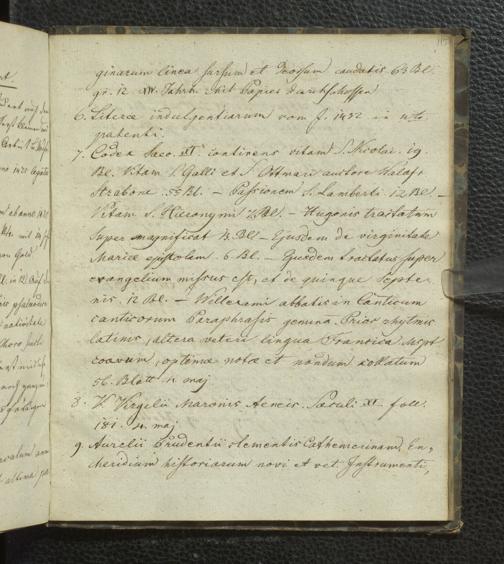 ginarum linea sursum et deorsum caudatis 63 Bl.
gr. 12 XIV. Jahrh. mit Papier durchschossen
6. Literæ indulgentiarum vom J. 1452 in 4to
patenti.
7. Codex Saec. XII. continens vitam S. Nicolai. 19
Bl. Vitam S. Galli et S. Otmari auctore Walaf.
Strabone. 55 Bl. – Passionem S. Lamberti. 12 Bl –
Vitam S. Hieronymi Bl. – Hugonis tractatum
super magnificat Bl – Ejusdem de virginitate
Mariæ epistolam. 6 Bl. – Ejusdem tractatus super
evangelium missus est, et de quinque Septe-
nis. 12 Bl. – Willerami abbatis in Canticum
canticorum Paraphrasis gemina. Prior rhytmis
latinis, altera veteri lingua Francica script
coævum, optimæ notæ et nondum collatum
56. Blätt. maj
8. Virgilii Maronis Aeneis. Sæculi XI. foll.
181. 4. maj
9. Aurelii Prudentii Clementis Cathemerinam, En-
cheridium historiarum novi et vet. Instrumenti,